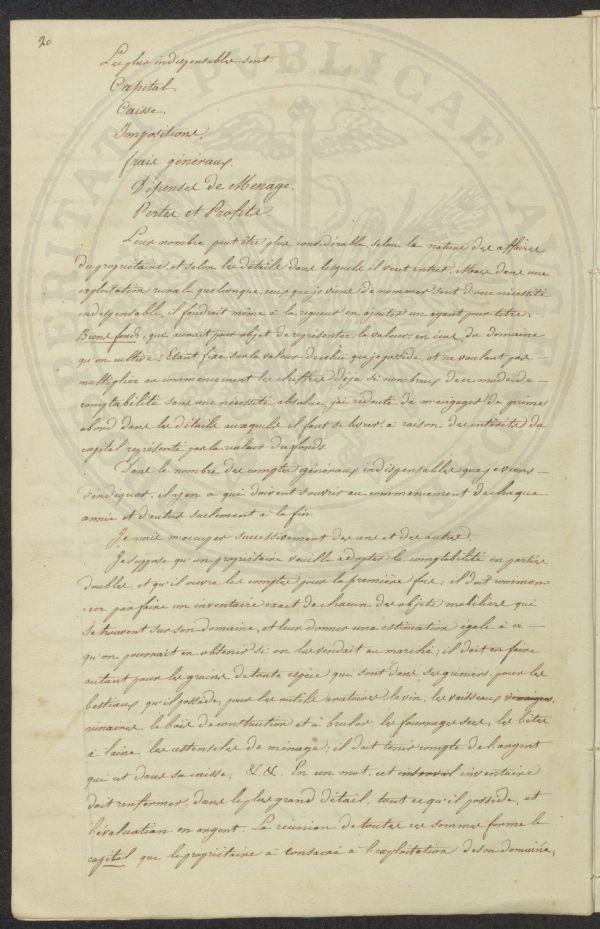 20
Les plus indispensables sont
Capital.
Caisse.
Impositions.
frais généraux.
Dépenses de Menage.
Pertes et Profits.
Leur nombre peut être plus considérable, selon la nature des affaires
du propriétaire, et selon les détails dans lesquels il veut entrer. Mais dans une
exploitation rurale quelconque, ceux que je viens de nommer sont d'une nécessité
indispensable, il faudrait même à la rigueur en ajouter un ayant pour titre,
Biens fonds, qui aurait pour objet de représenter la valeur, en écus, du domaine
qu'on cultive: Etant fixé sur la valeur de celui que je possède, et ne voulant pas —
multiplier au commencement les chiffres déja si nombreux dece mode de —
comptabilité sans une nécessité absolue, j'ai rédouté de m'engager de prime
abord dans les détails auxquels il faut se livrer, à raison des intérêts du
capital représenté par la valeur du fonds.
Dans le nombre des comptes généraux indispensables que je viens —
d'indiquer, il y en a qui doivent s'ouvrir au commencement de chaque
année et d'autres seulement à la fin.
Je vais m'occuper successivement des uns et des autres.
Je suppose qu'un propriétaire veuille adopter la comptabilité en parties
doubles, et qu'il ouvre les comptes pour la première fois; il doit commen-
-cer par faire un inventaire exact de chacun des objets mobiliers qui
se trouvent sur son domaine, et leur donner une estimation égale à ce —
qu'on pourrait en obtenir si on les vendait au marché; il doit en faire
autant pour les grains de toute espèce qui sont dans ses greniers, pour les
bestiaux qu'il possède, pour les outils aratoires, le vin, les vaisseaux
vinaires, le bois de construction et à bruler, les fourrages secs, les bêtes
à laine, les ustensiles de ménage; il doit tenir compte de l'argent
qui est dans sa caisse, &. &. En un mot, cet inventaire
doit renfermer, dans le plus grand détail, tout ce qu'il possède, et
l'évaluation en argent. La réunion de toutes ces sommes forme le
capital que le propriétaire a consacré à l'exploitation de son domaine,